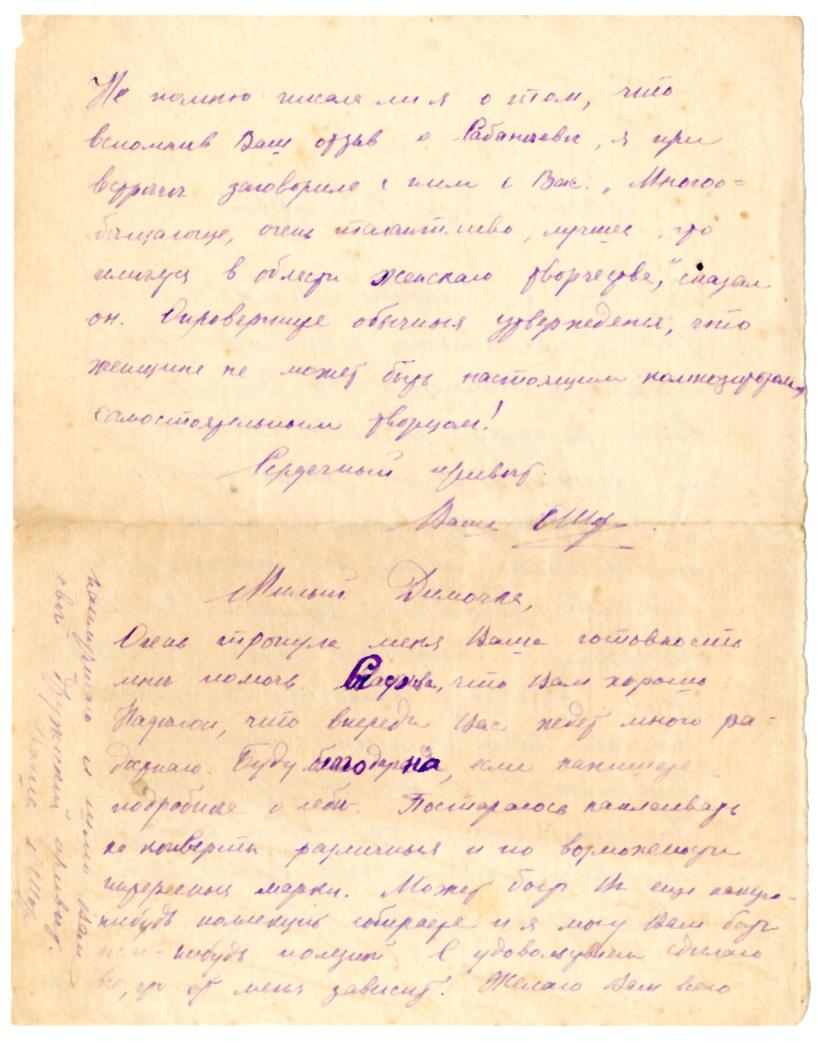 Не помню писала ли я о том, что
вспомнив Ваш отзыв о Сабанеевѣ, я при
встрѣчѣ заговорила с ним о Вас. „Многоо=
бѣщающе, очень талантливо, лучшее, что
имѣется в области женскаго творчества," сказал
он. Опровергнуте обычныя утвержденія, что
женщина не может быть настоящим композитором,
самостоятельным творцом!
Сердечный привѣт.
Ваша
Милый Димочка,
Очень тронула меня Ваша готовность
мнѣ помочь. что Вам хорошо.
Надѣюсь, что впереди Вас ждет много ра-
достнаго. Буду благодарна, если напишете
подробнѣе о себѣ. Постараюсь наклеивать
на конверты различныя и по возможности
интересныя марки. Может быть Вы еще какую-
нибудь коллекцію собираете и я могу Вам быть
чем-нибудь полезной. С удовольствіем сдѣлаю
все, что от меня зависит. Желаю Вам всего
наилучшаго и шлю Вам
свой дружескій привѣт.
Ваша